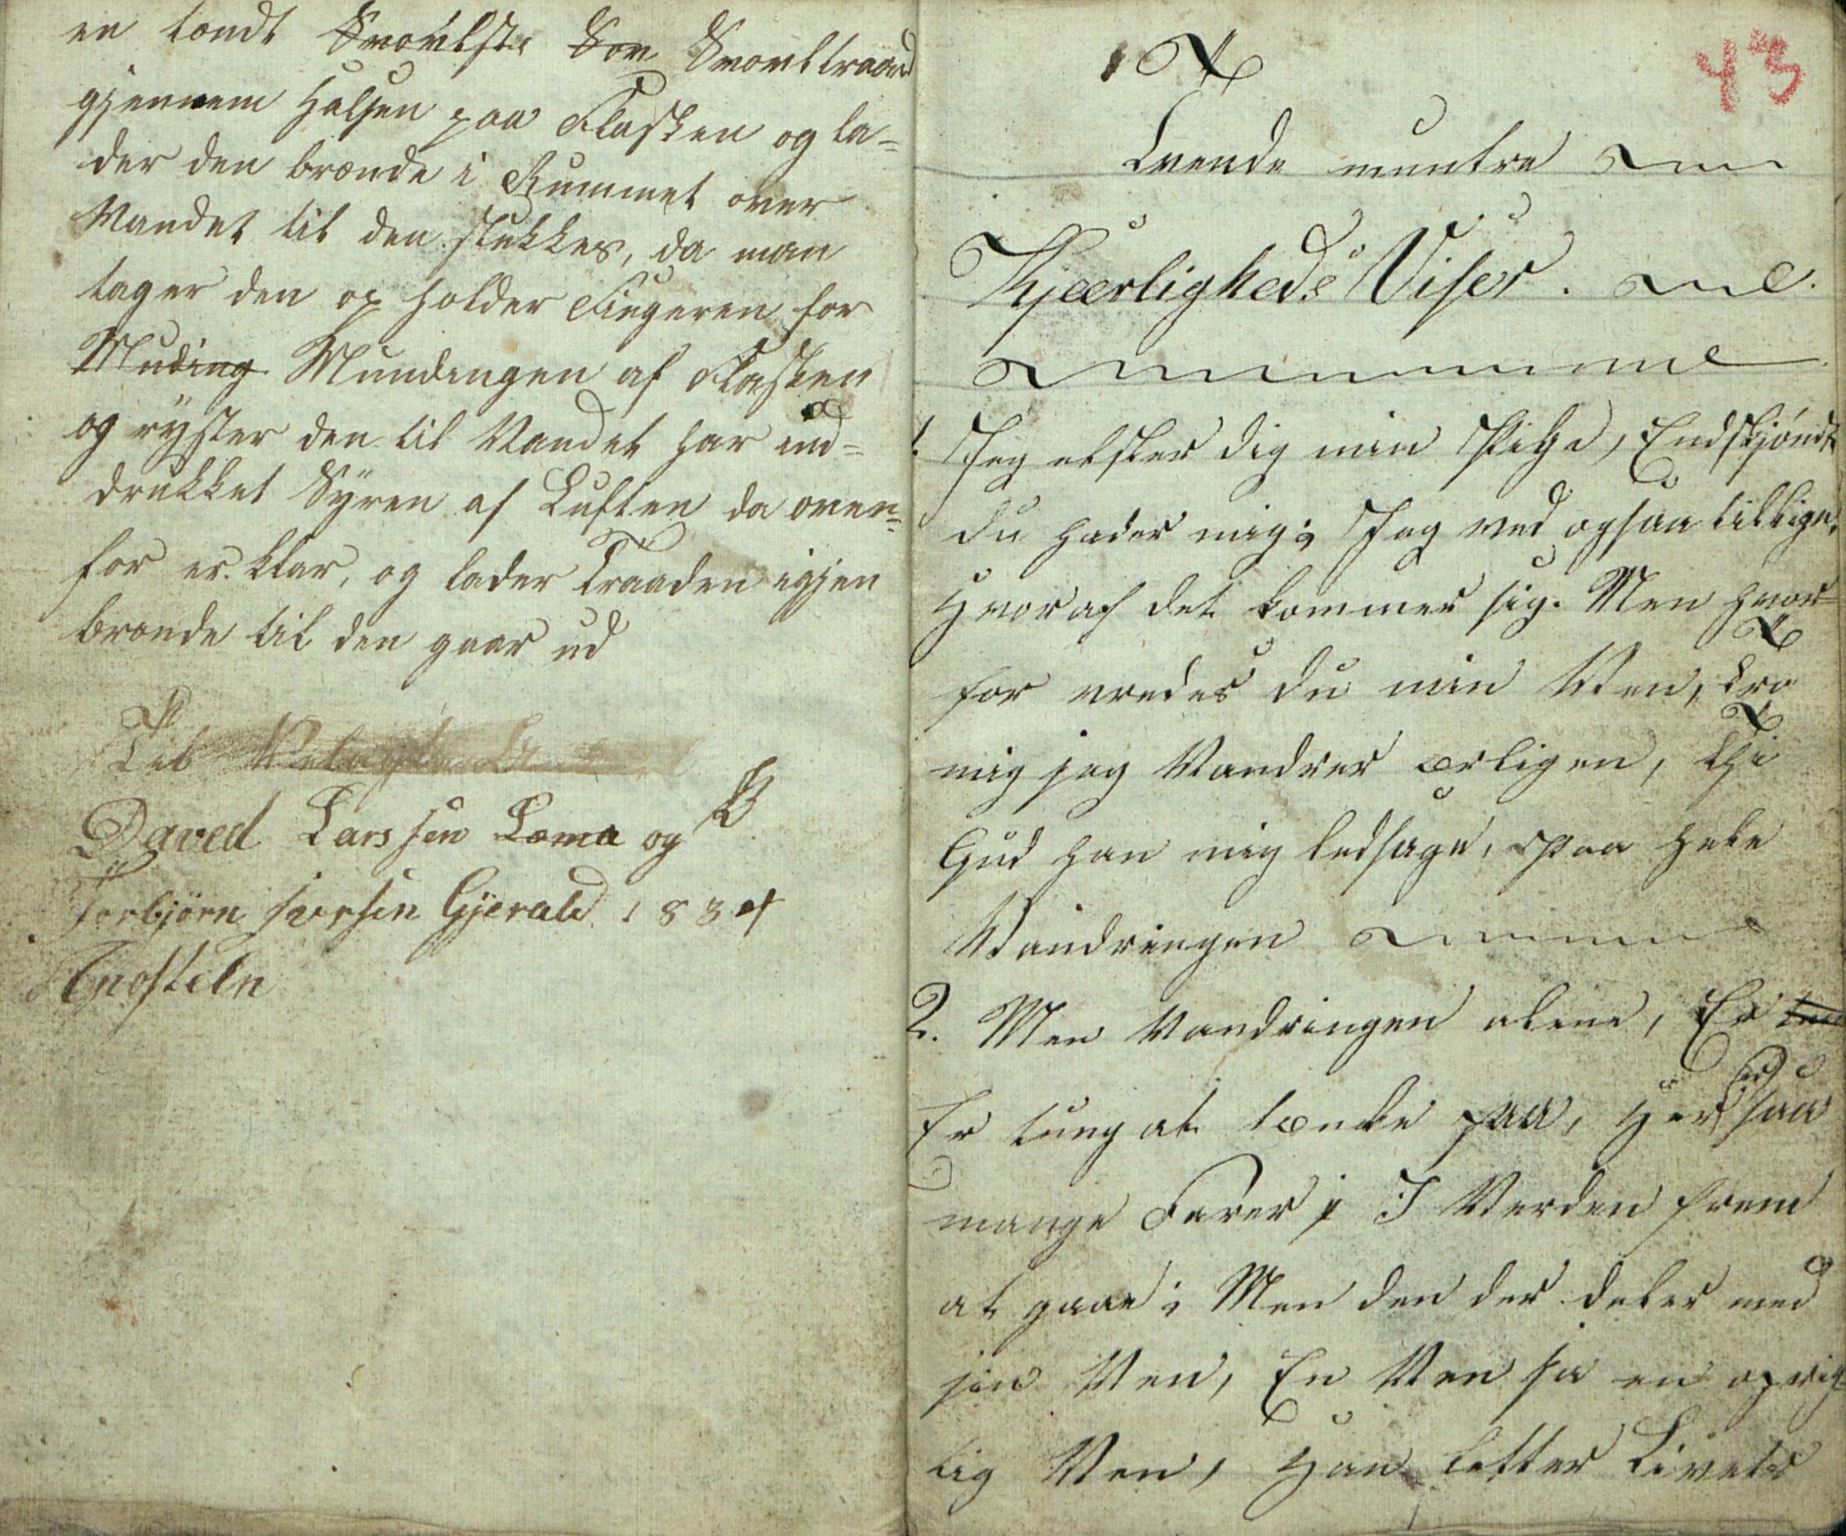 en tændt Svovelst: Svov Svovltraad
gjennem Halsen paa Flasken og la-
der den brænde i Rummet over
Vandet til den slukkes, da man
tager den op holder Fingeren for
Muding Mundingen af Flasken
og ryster den til Vandet har ind-
drukket Syren af Luften da oven-
for er klar, og lader Traaden igjen
brænde til den gaar ud
Til
Daved Larssen Loma og
Torbjörn Iversen Gjerald 1834
43
Tvende muntre
Kjærligheds Viser.
1. Jeg elsker dig min Pige, Endskjöndt
du hader mig; Jeg ved ogsaa tillige,
Hvoraf det kommer sig. Men hvor-
for vredes du min Ven, tro
mig jeg Vandrer ærligen, thi
Gud han mig ledsage, Paa hele
Vandringen
2. Men Vandringen alene, Er
Er tung at tænke paa, Her er saa
mange Farer I Verden frem
at gaae; Men den der deler med
sin Ven, En Ven ja en oprig-
tig Ven, Han letter Livets